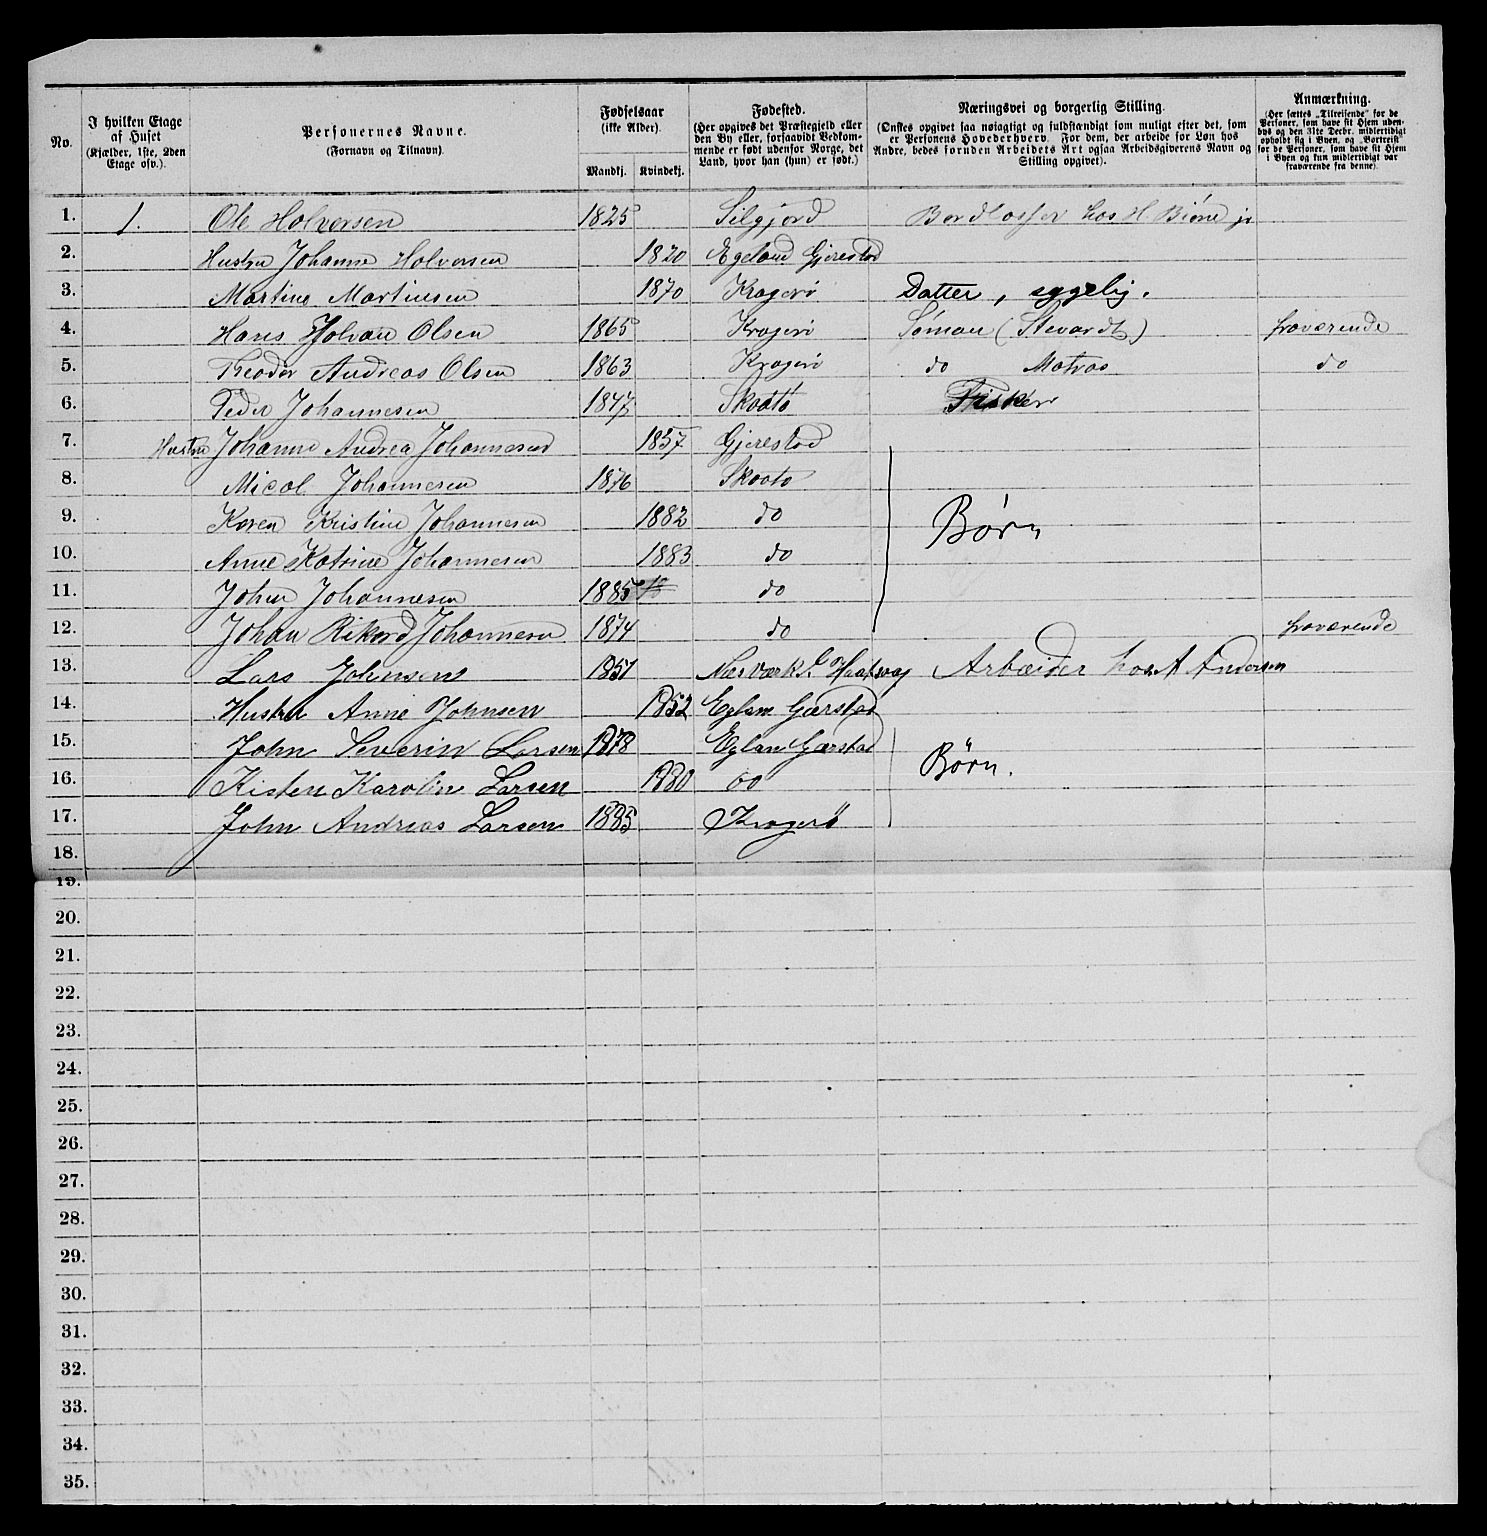 No. | I hvilken Etage af Huset (Kjælder, 1ste, 2den Etage osv.). | Personernes Navne. (Fornavn og Tilnavn). | Fødselsaar (ikke Alder). Mandkj. | Kvindekj. | Fødested. (Her opgives det Præstegjeld eller den By eller, forsaavidt Vedkommende er født udenfor Norge, det Land, hvor han (hun) er født.) | Næringsvei og borgerlig Stilling. (Ønskes opgivet saa nøiagtigt og fuldstændigt som muligt efter det, som er Personens Hovederhverv. For dem, der arbeide for Løn hos Andre, bedes foruden Arbeidets Art ogsaa Arbeidsgiverens Navn og Stilling opgivet). | Anmærkning. (Her sættes „Tilreisende“ for de Personer, som have sit Hjem udenbys og den 31te Decbr. midlertidigt opholdt sig i Byen, og „Bortreist“ for de Personer, som have sit Hjem i Byen og kun midlertidigt var fraværende fra denne).
1. 1. Ole Holversen 1825 Silgjord hos H. Biørn jr
2. Hustru Johanne Holversen 1820 Egeland Gjerestad
3. Martine Martinsen 1870 Kragerö Datter, sygelig.
4. Hans Olsen 1865 Kragerö Söman (Stevardt) fraværende
5. Theodor Andreas Olsen 1863 Kragerö do Matros do
6. Peder Johannesen 1847 Skaatö Fisker
7. Hustru Johanne Andrea Johannesen 1857 Gjerestad
8. Micol Johannesen 1876 Skaatö
9. Karen Kristine Johannesen 1882 do Børn
10. Anne Katrine Johannesen 1883 do
11. Johan Johannesen 1885 do
12. Johan Rikard Johannesen 1874 do fraværende
13. Lars Johnsen 1851 Næsværk Arbeider hos A Andersen
14. Hustru Anne Johnsen 1852 Eglan Gærstad
15. John Severin Larsen 1878 Eglan Gærstad
16. Kisten Karolin Larsen 1880 do Børn.
17. John Andrias Larsen 1885 Kragerö
18.
19.
20.
21.
22.
23.
24.
25.
26.
27.
28.
29.
30.
31.
32.
33.
34.
35.